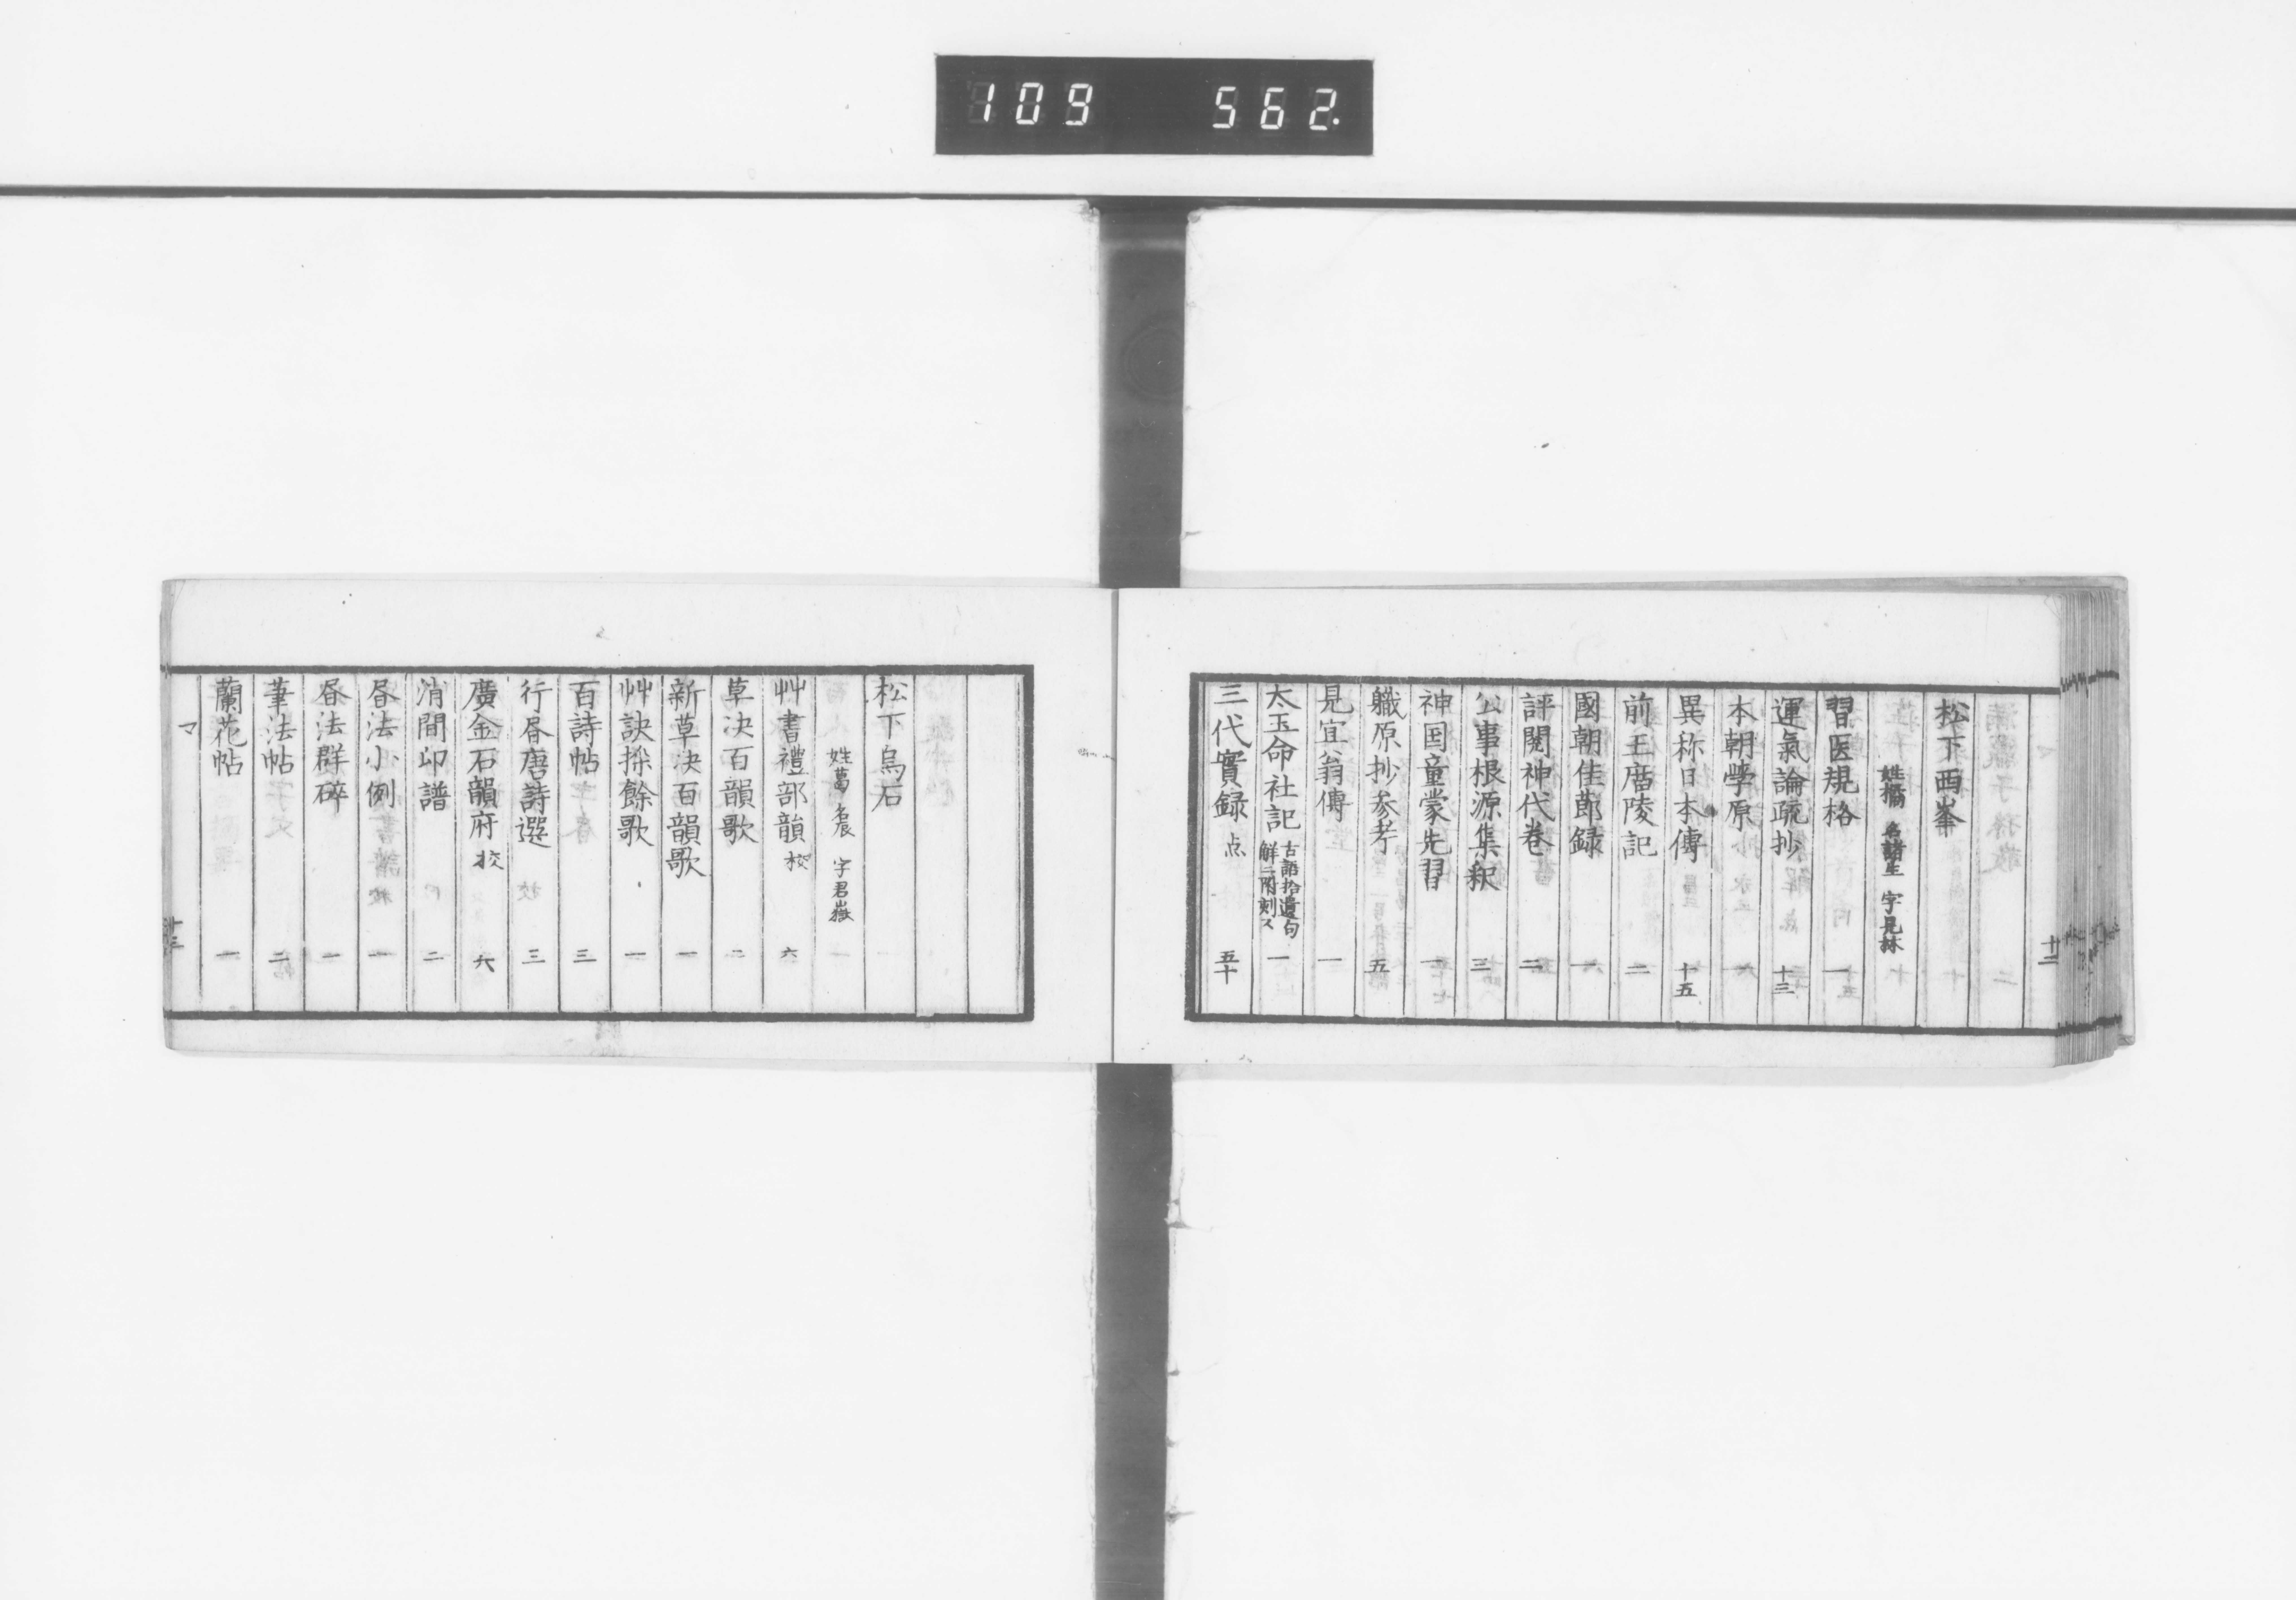 109 562.
十二
松下西峯
姓橘 名諸生 字見林
習医規格 一
運氣論疏抄 十三
本朝學原 一
異称日本傳 十五
前王廟陵記 二
國朝佳節録 一
評閱神代巻 二
公事根源集釈 三
神国童蒙先習 一
職原抄参考 五
見宜翁傳 一
太玉命社記 古語拾遺句解ニ附刻ス 一
三代實録 点 五十
松下烏石
姓葛 名辰 字君嶽
艸書禮部韻 校 六
草决百韻歌 二
新草决百韻歌 一
艸訣採餘歌 一
百詩帖 三
行昏唐詩選 三
廣金石韻府 校 六
消間印譜 二
昏法小例 一
昏法群碎 一
筆法帖 二
蘭花帖 一
マ
十三